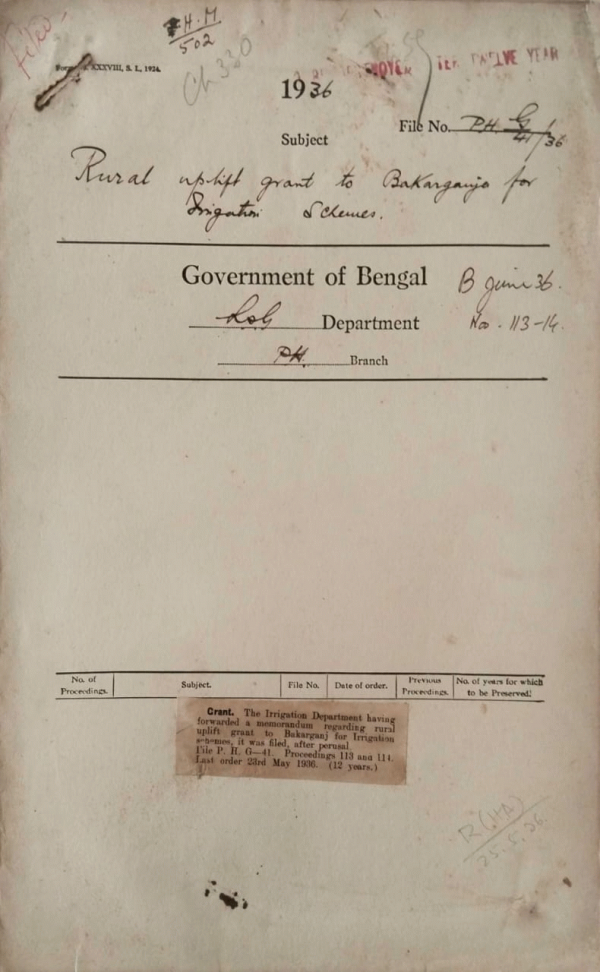 P.H.M
502
Ch 330
XXXVIII, S. I., 1924.
TWELVE YEAR
1936
File No. PH G/41/36
Subject
Rural uplift grant to Bakarganje for
Irrigation Schemes.
Government of Bengal
B June 36.
LSG Department
Nos. 113-14.
PH. Branch
No. of Proceedings. Subject. File No. Date of order. Previous Proceedings. No. of years for which to be Preserved.
Grant. The Irrigation Department having
forwarded a memorandum regarding rural
uplift grant to Bakarganj for Irrigation
schemes, it was filed, after perusal.
File P. H. G—41. Proceedings 113 and 114.
Last order 23rd May 1936. (12 years.)
R(HA)
25.5.36